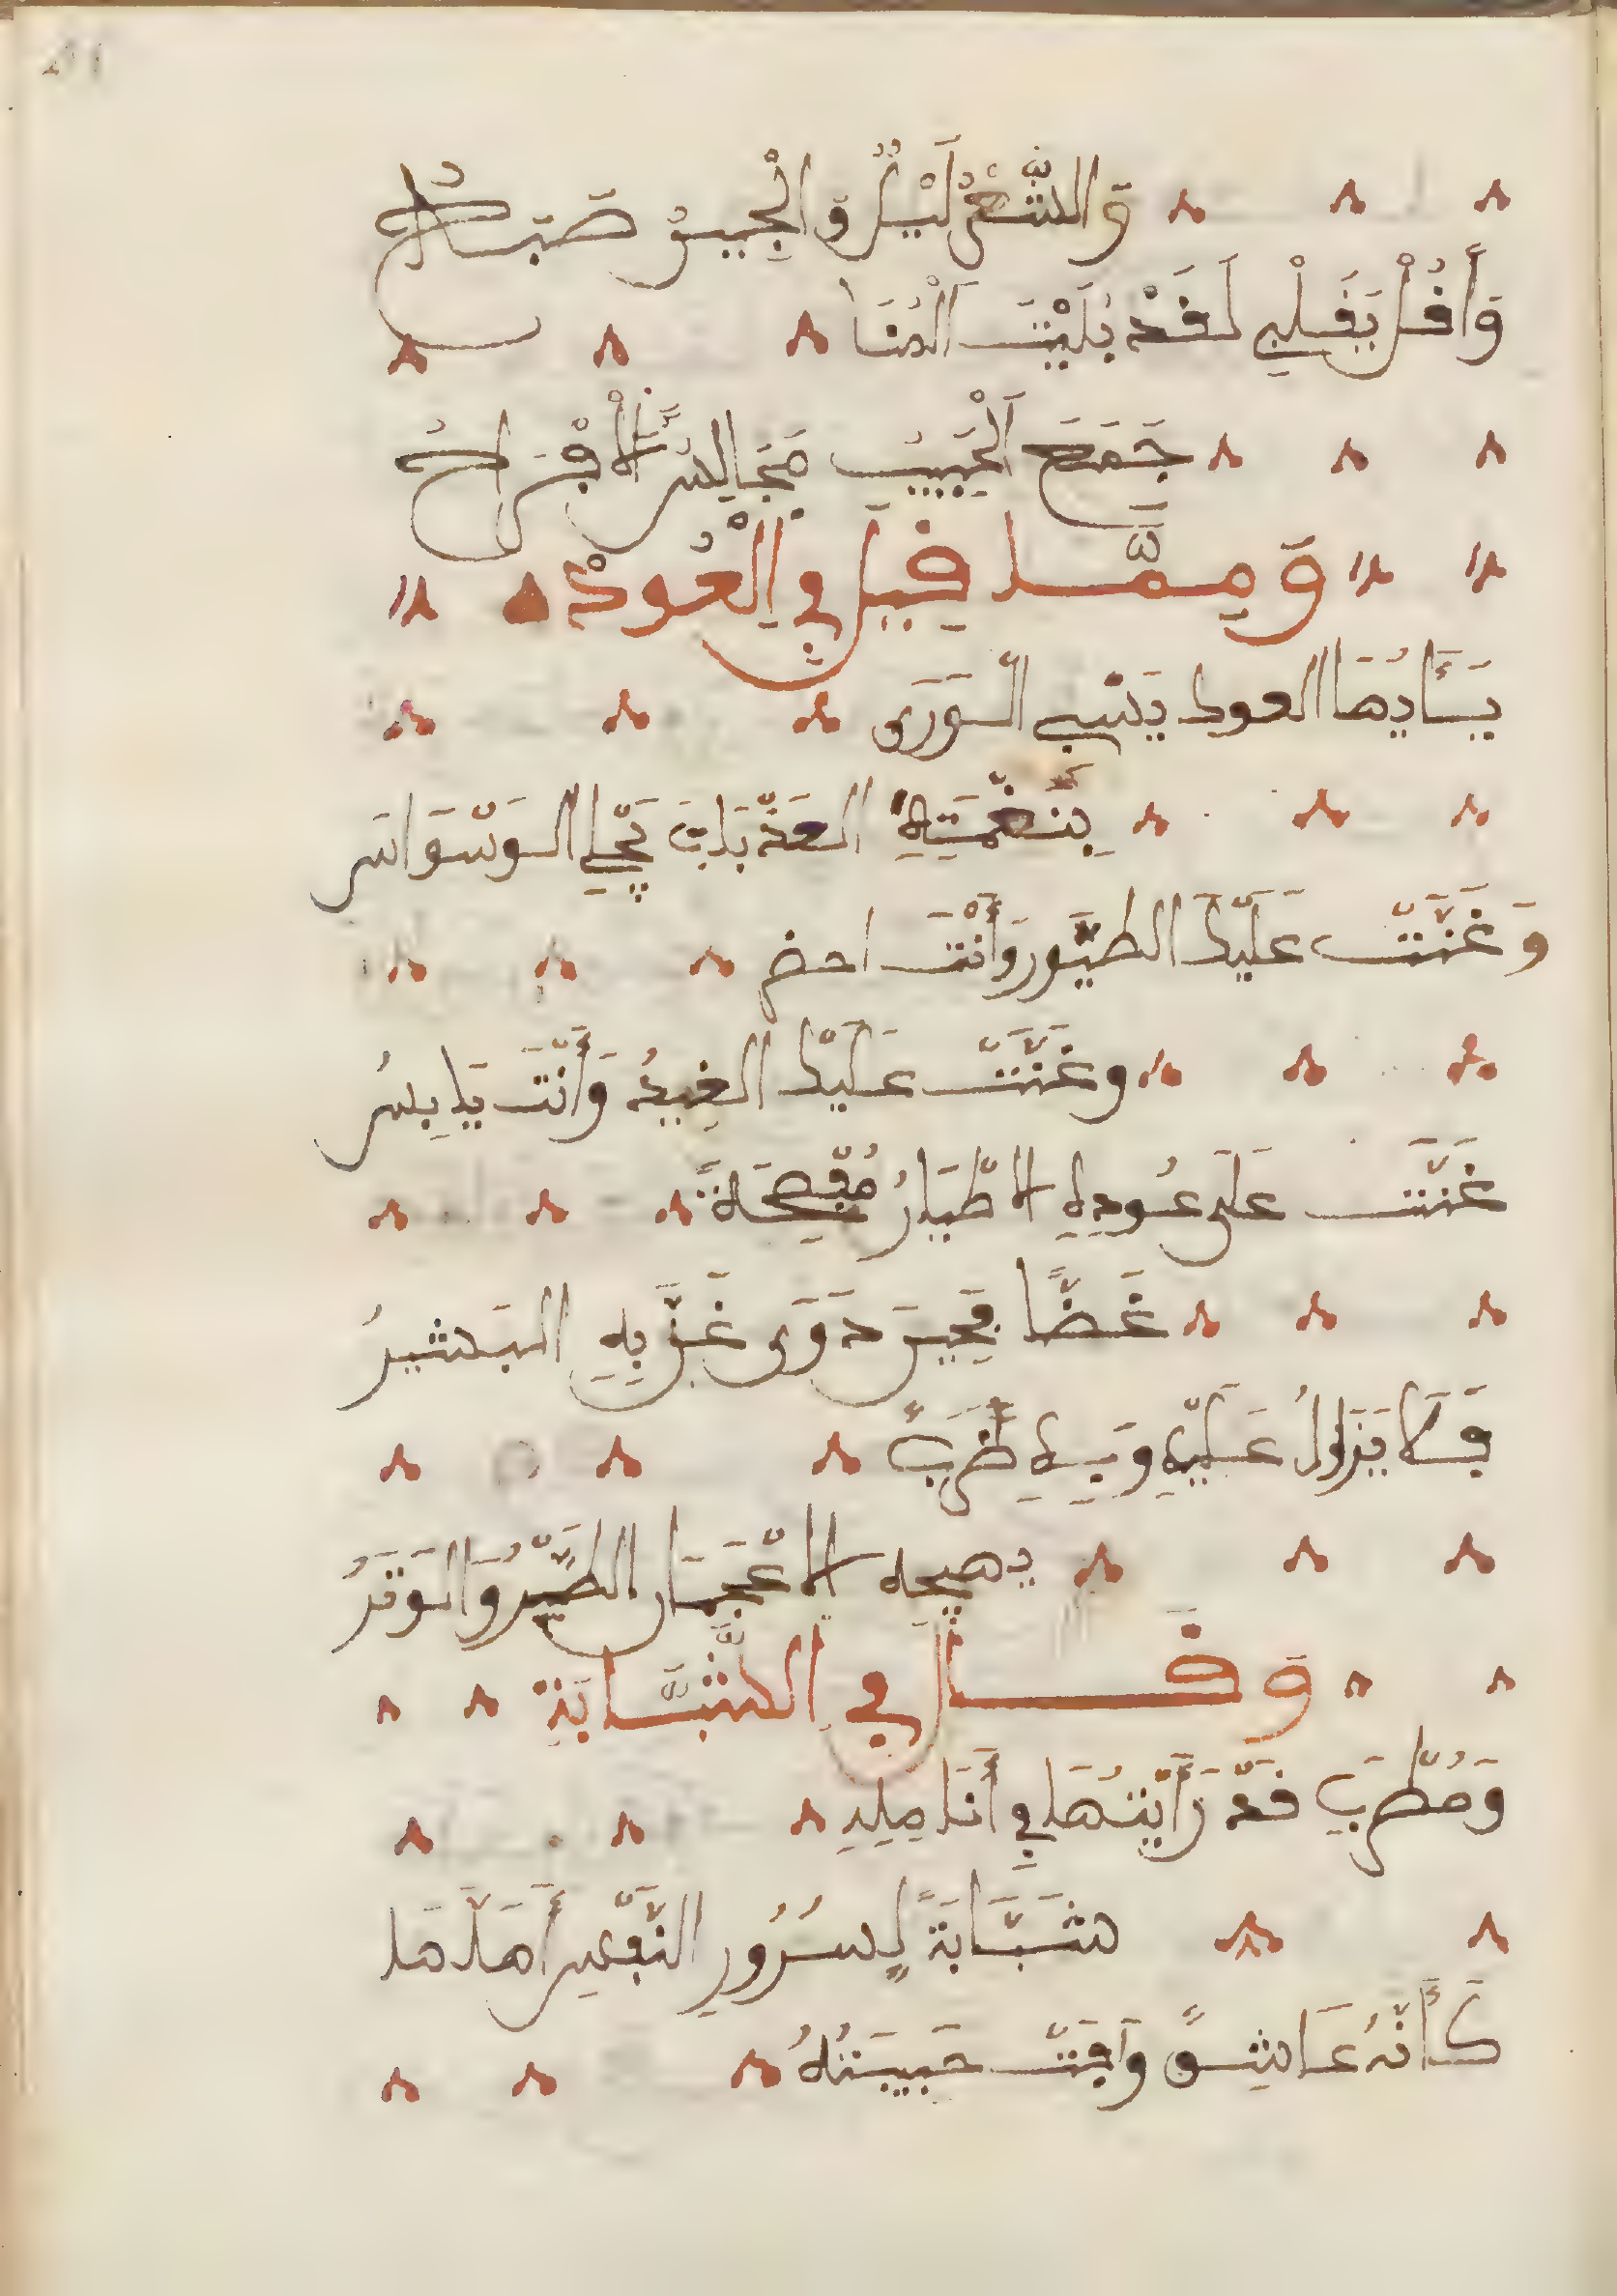 وَالشَّعْرُ لَيْلٌ وَالْجَبِينُ صَبَاحٌ
وَأَقُلْ لِقَلْبِي لَقَدْ بُلِيْتَ الْمُنَا
جَمَعَ الْحَبِيبُ مَجَالِسَ الْأَفْرَاحُ
وَمِمَّا قِيلَ فِي الْعُودِ
يَأَيُّهَا العود يَسْبِي الْوَرَى
بِنَغْمَتِهِ العَذْبَاتِ يَجْلِي الْوَسْوَاسَ
وَغَنَّتْ عَلَيْكَ الطُّيُور وَأَنْتَ اخضر
وَغَنَّتْ عَلَيْكَ الْغِيدُ وَأَنْتَ يَابِسُ
غَنَّتْ عَلَى عُودِهِ الأَطْيَارُ مُفْصِحَةً
غَضًّا فَحِينَ ذَوَى غَنَّ بِهِ الْبَشِيرُ
فَلَا يَزَالُ عَلَيْهِ وَبِهِ طَرَبٌ
يهيجه الأَعْجَمَانِ الطَّيْرُ وَالْوَتَرُ
وَقَالَ فِي الشَّبَّابَةِ
وَمُطْرِبٍ قَدْ رَأَيْتُهَا فِي أَنَامِلِهِ
شَبَّابَةً لِسُرُورِ النَّفْسِ أَهْلَهَا
كَأَنَّهُ عَاشِقٌ وَافَتْ حَبِيبَتُهُ